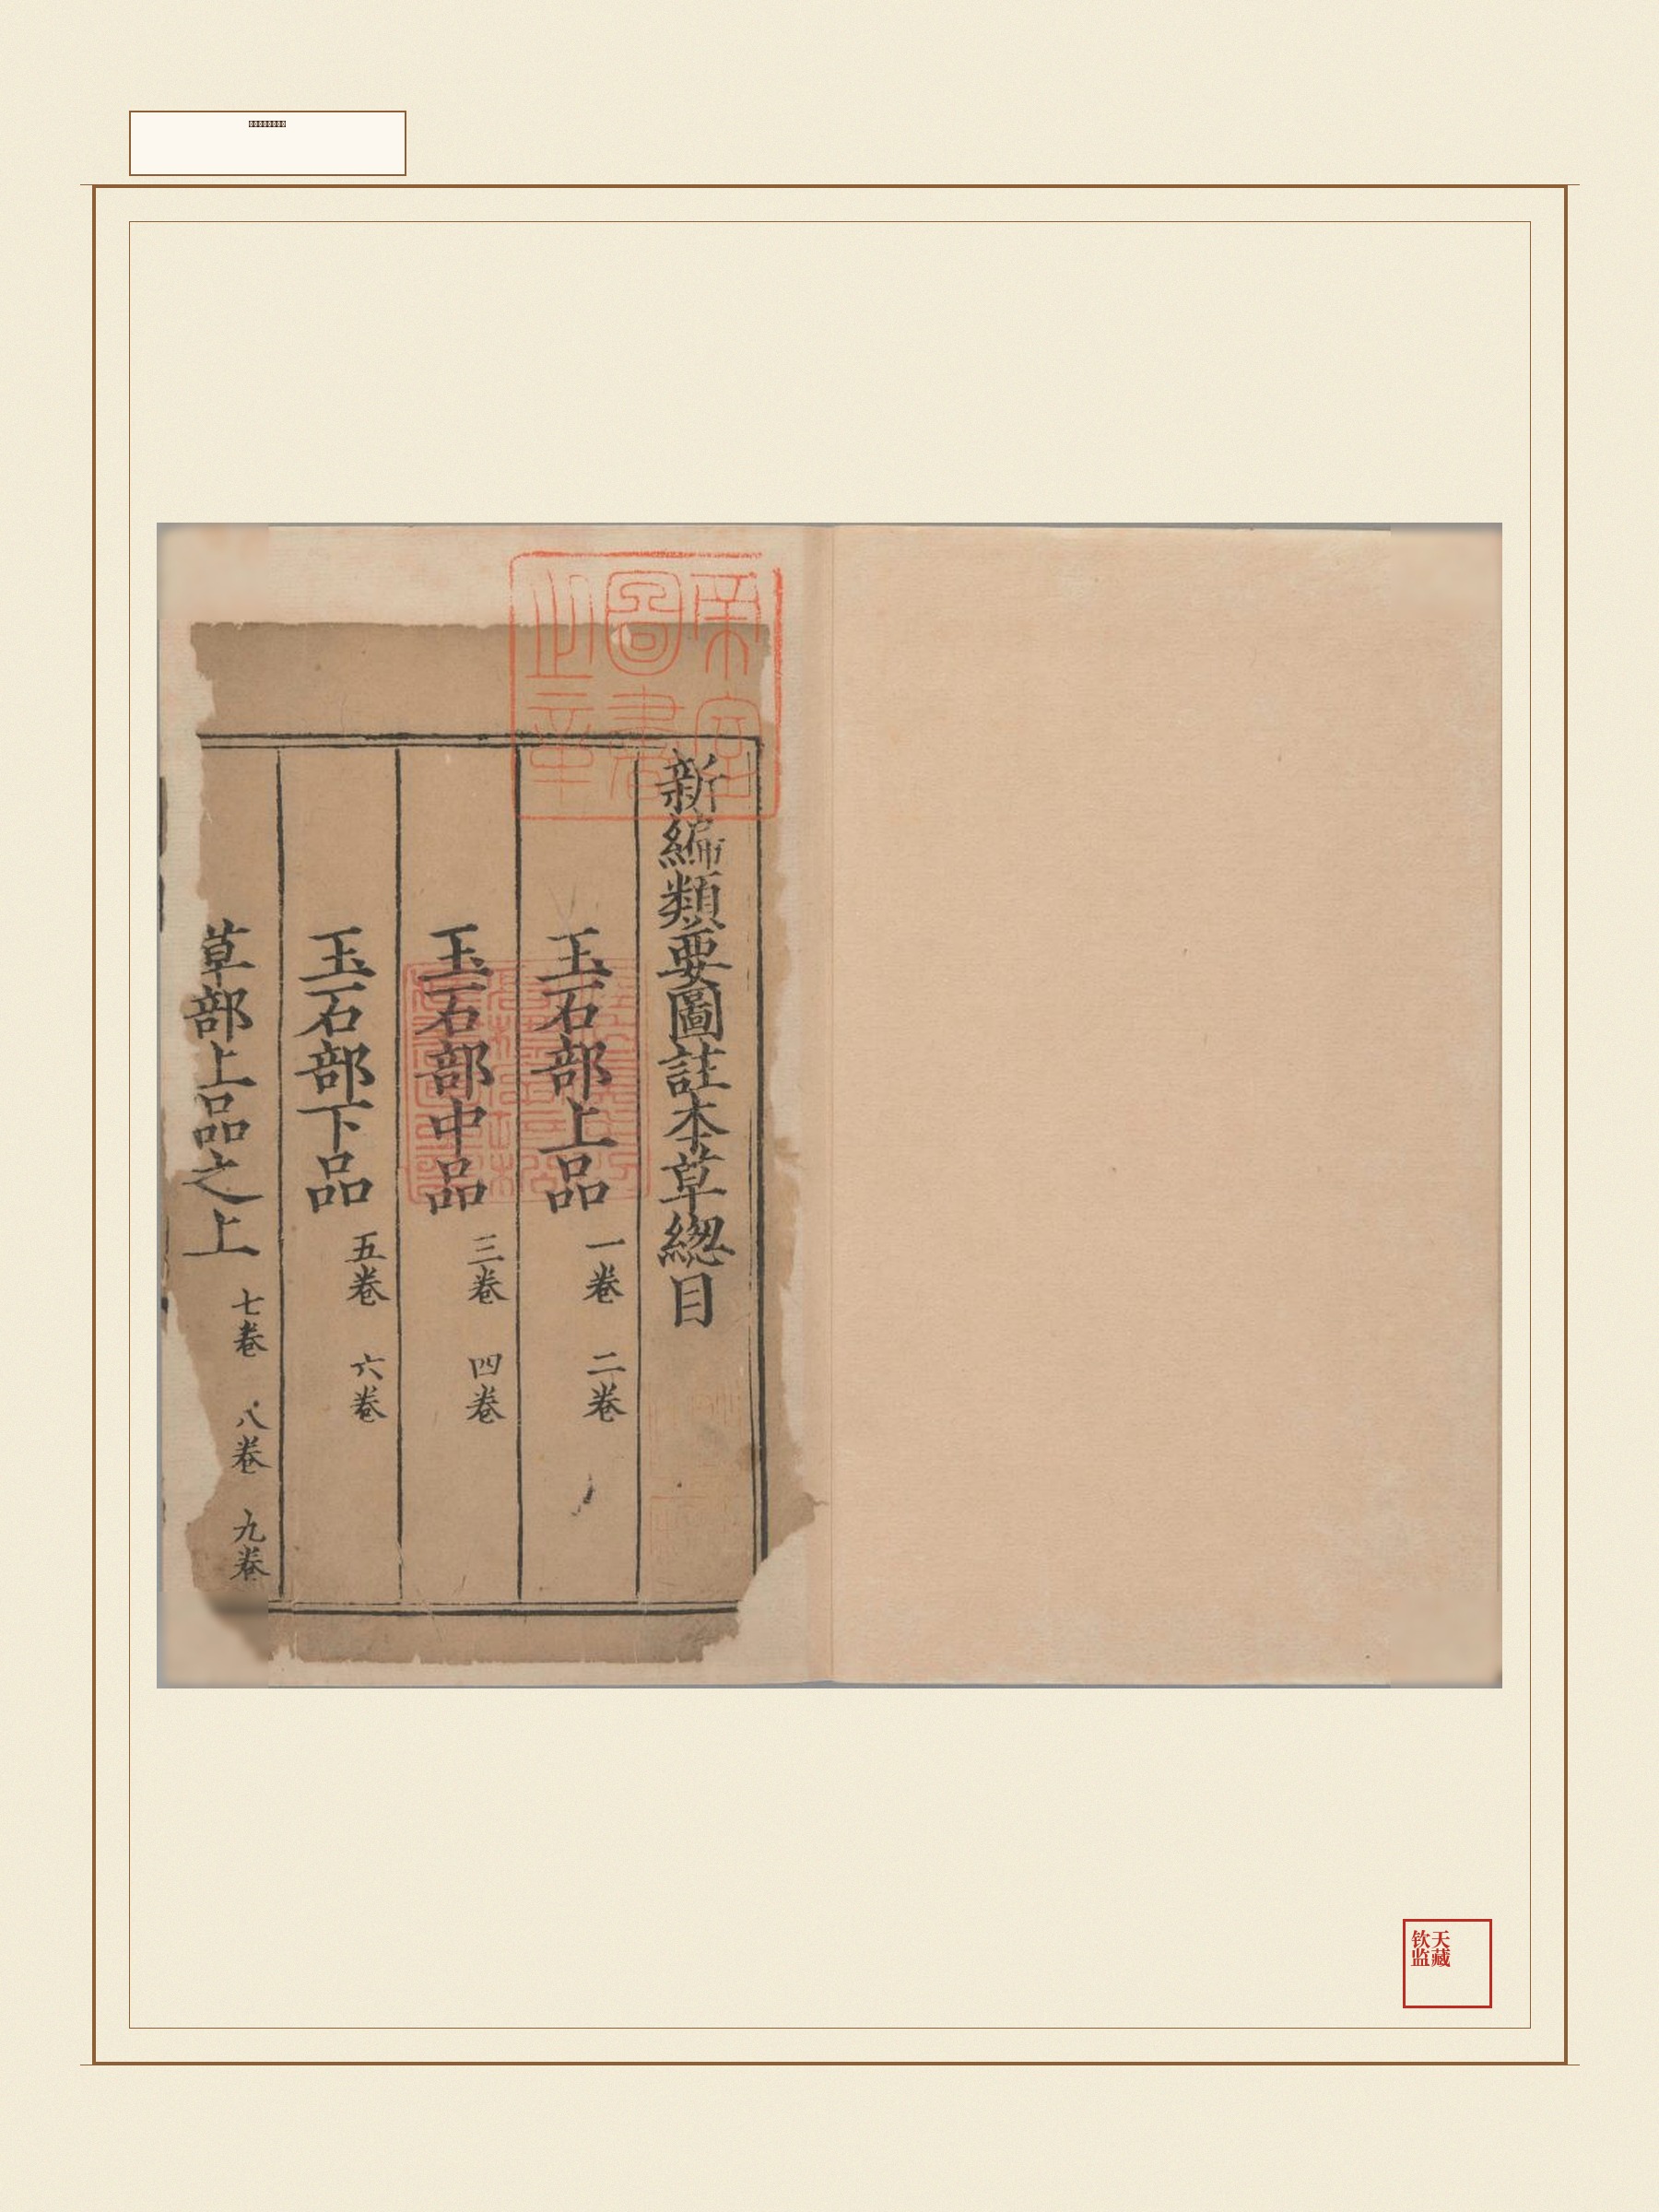 新編類要圖註本草緫目
玉石部上品 一卷 二卷
玉石部中品 三卷 四卷
玉石部下品 五卷 六卷
草部上品之上 七卷 八卷 九卷
圖書
之章
天藏
钦监